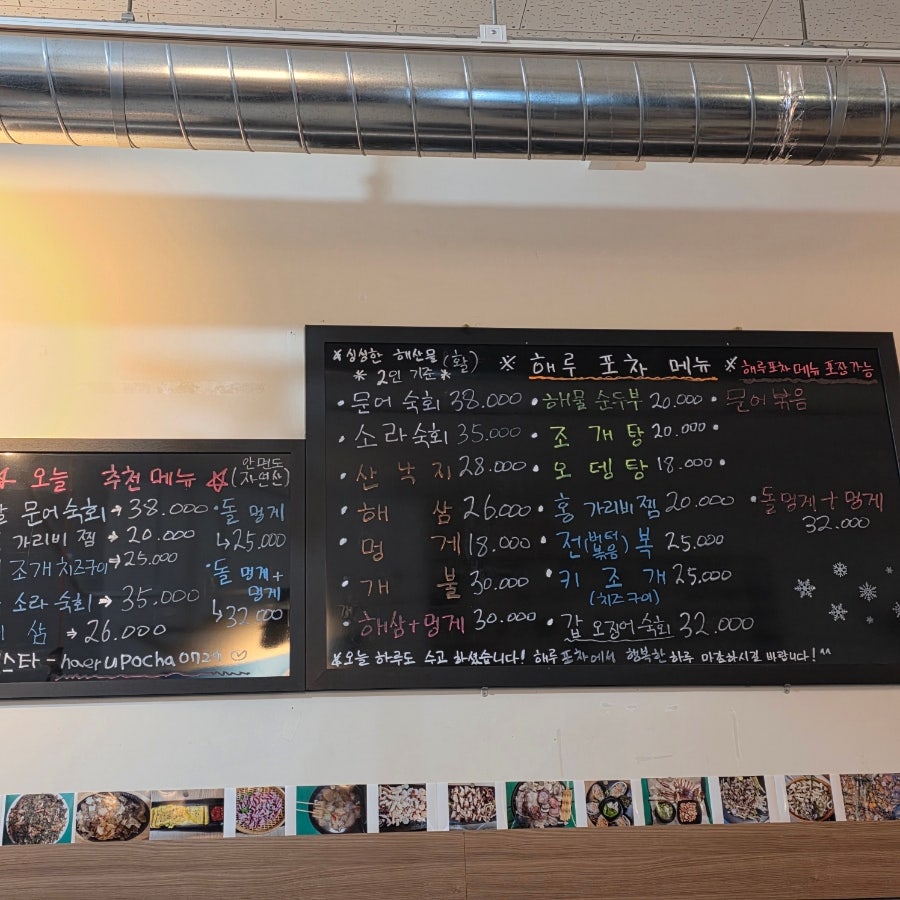 ☆ 오늘 추천 메뉴 ☆ (안면도 자연산)
문어숙회 → 38.000
가리비 찜 → 20.000
조개치즈구이 → 25.000
소라 숙회 → 35.000
삼 → 26.000
· 돌 멍게
↳ 25.000
· 돌 멍게 + 멍게
↳ 32.000
스타 - haerupocha0727 ♡
※ 싱싱한 해산물 (활)
※ 2인 기준 ※
※ 해루 포차 메뉴 ※
해루포차 메뉴 포장가능
· 문어 숙회 38.000
· 소라 숙회 35.000
· 산 낙지 28.000
· 해 삼 26.000
· 멍 게 18.000
· 개 불 30.000
· 해삼+멍게 30.000
· 해물 순두부 20.000
· 조 개 탕 20.000
· 오 뎅 탕 18.000
· 홍 가리비 찜 20.000
· 전 (버터 볶음) 복 25.000
· 키 조 개 25.000
(치즈구이)
· 갑 오징어 숙회 32.000
· 문어 볶음
· 돌멍게 + 멍게
32.000
※ 오늘 하루도 수고 하셨습니다! 해루포차에서 행복한 하루 마감하시길 바랍니다! ^^